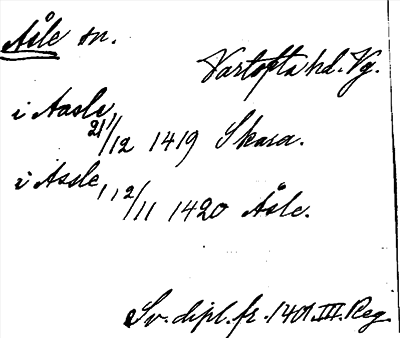 Åsle sn.
Vartofta hd. Vg.
i Aasle
21/12 1419 Skara.
i Assle
12/11 1420 Åsle.
Sv. dipl. fr. 1401. III. Reg.